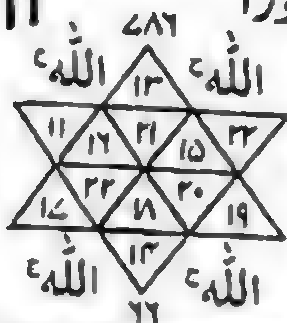 ۷۸۶
اللہ اللہ
۱۳
۱۱ ۱۶ ۲۱ ۱۵ ۲۳
۱۷ ۲۲ ۱۸ ۲۰ ۱۹
۱۳
اللہ اللہ
۶۶